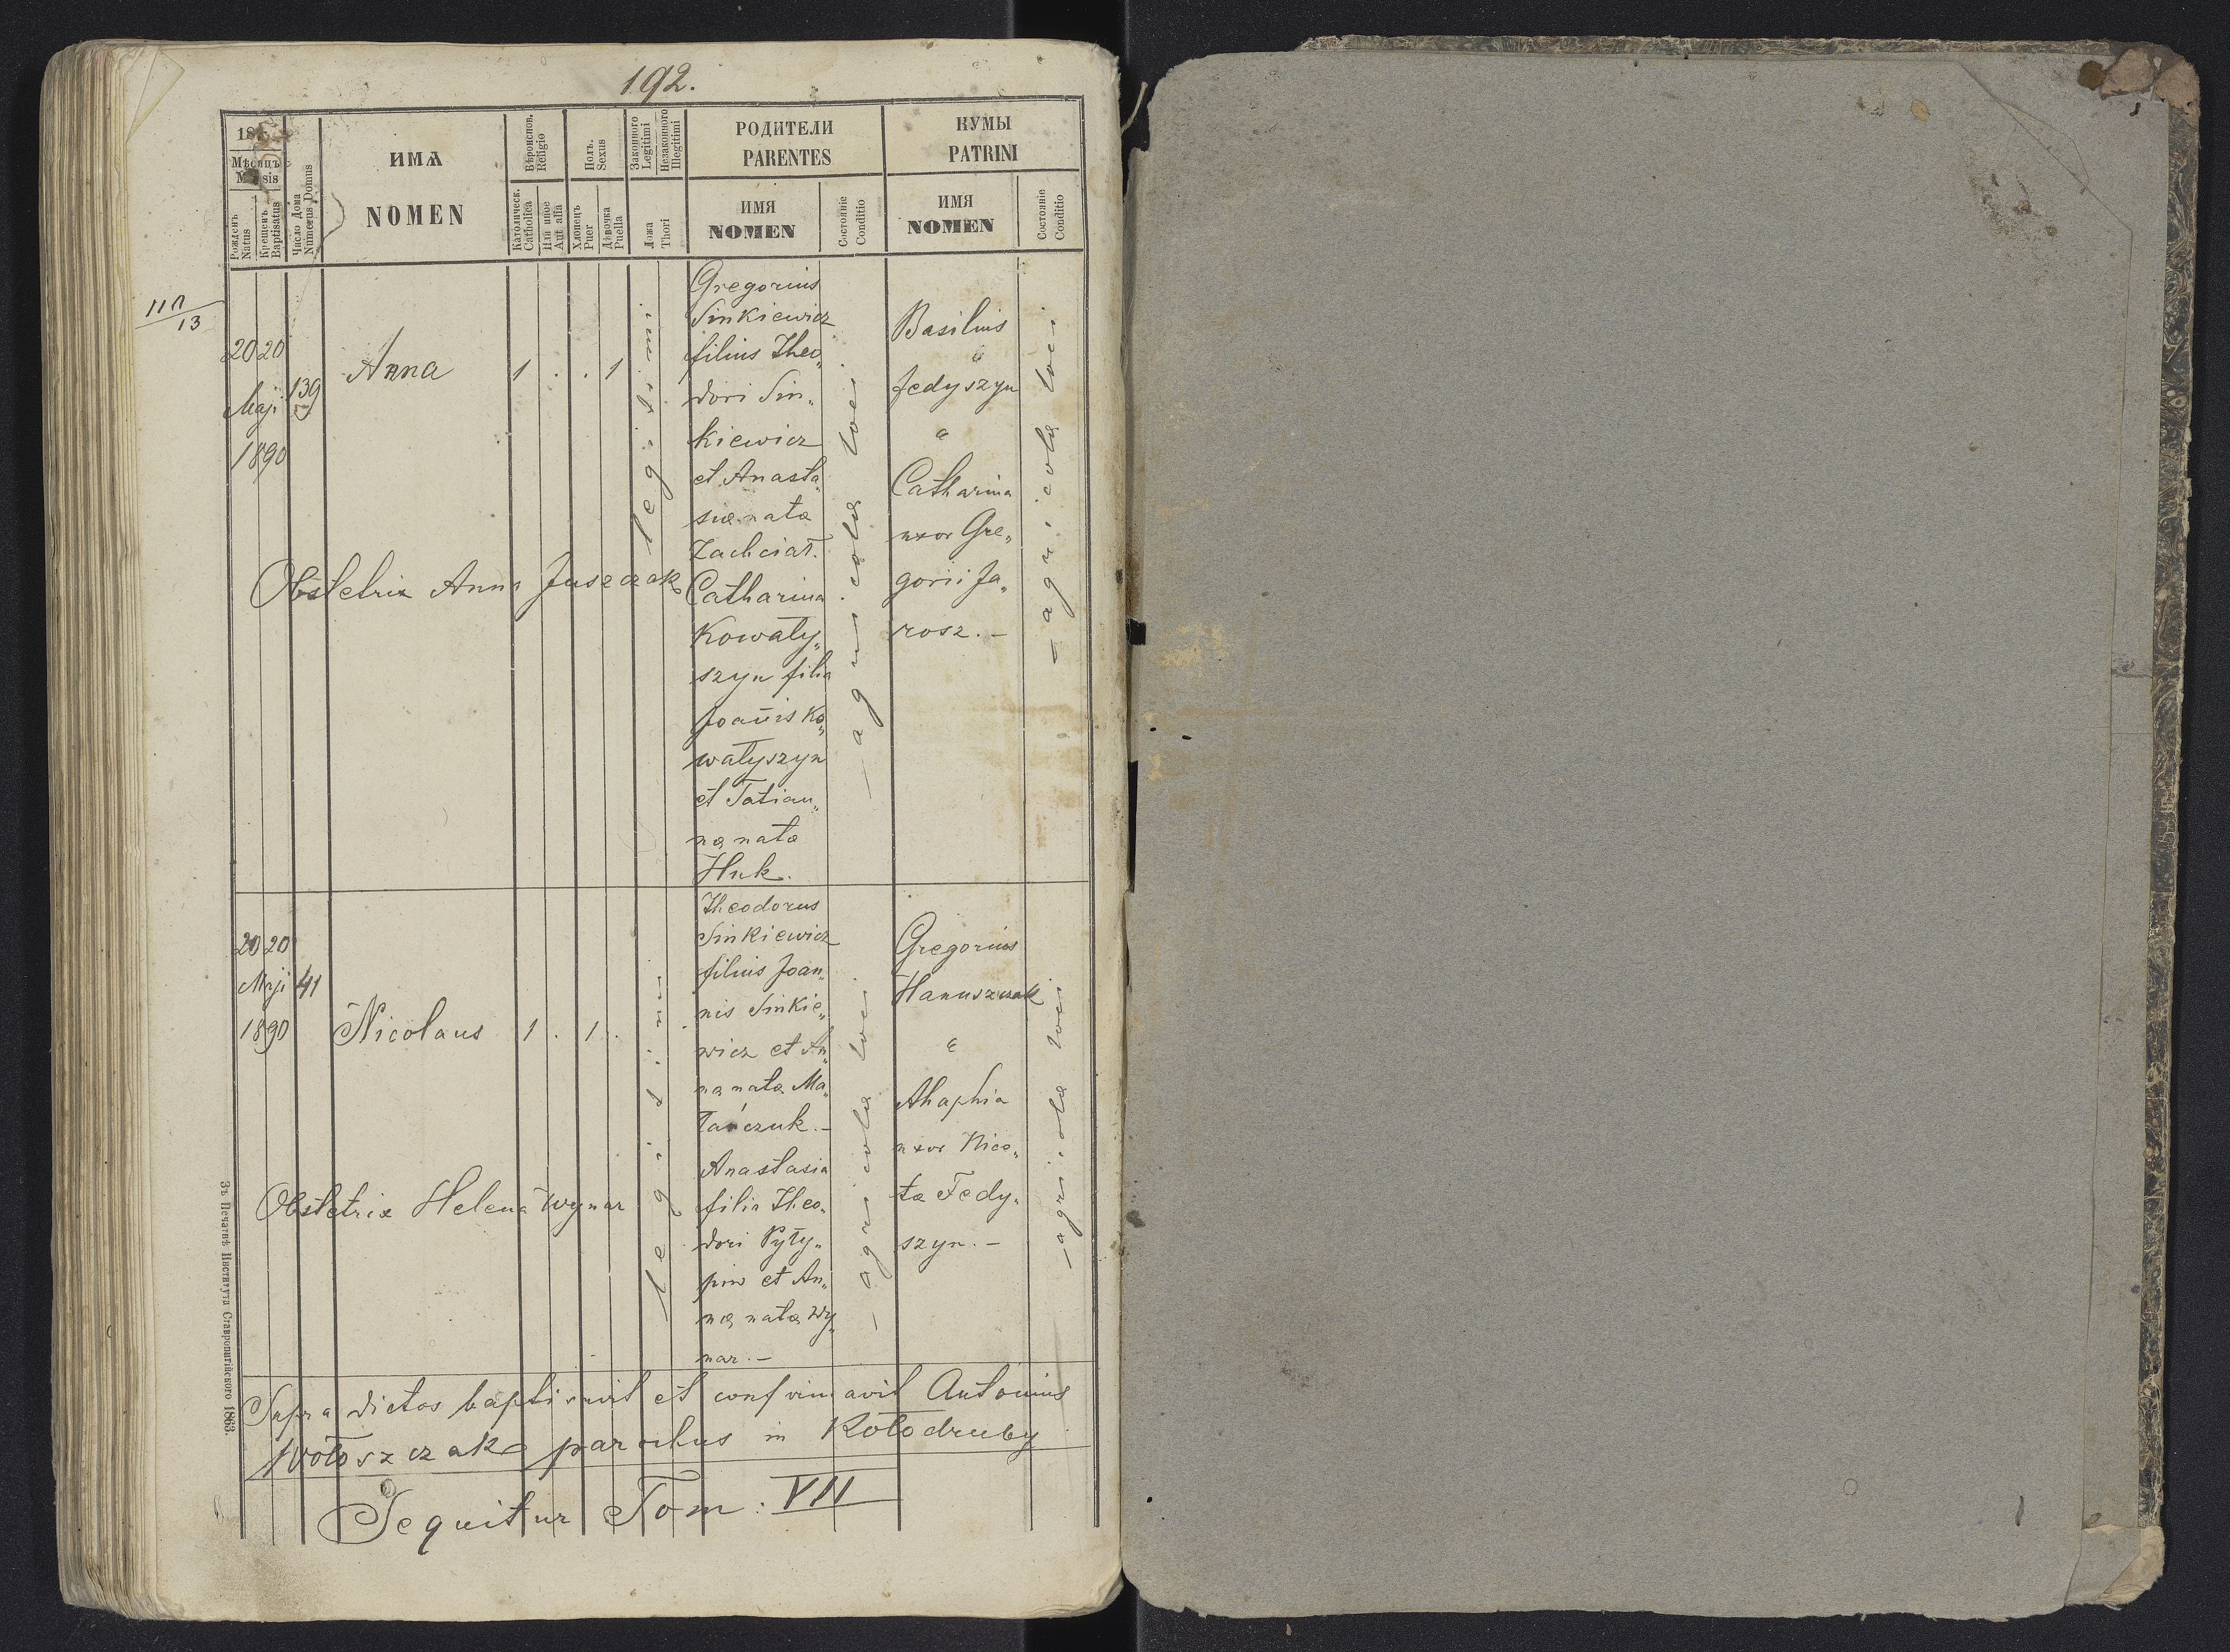 192.
18
Мѣсяцъ
Mensis
Рожденъ
Natus
Крещенъ
Baptisatus
Число Дома
Numerus Domus
ИМѦ
NOMEN
Вѣроиспов.
Religio
Католическ.
Catholica
Или иное
Aut alia
Полъ.
Sexus
Хлопецъ
Puer
Дѣвочка
Puella
Законного
Legitimi
Незаконного
Illegitimi
Ложа
Thori
РОДИТЕЛИ
PARENTES
ИМЯ
NOMEN
Состояніе
Conditio
КУМЫ
PATRINI
ИМЯ
NOMEN
Состояніе
Conditio
13
20 20
Maji
1890
139
Anna
1 . . 1
legitimi
Gregorius
Sinkiewicz
filius Theo„
dori Sin„
kiewicz
et Anasta„
siæ natæ
Zachciał.
Catharina
Kowały„
szyn filia
Joan̄is Ko„
wałyszyn
et Tatian„
næ natæ
Huk.
– agricolæ loci.
Basilius
„
Fedyszyn
„
Catharina
uxor Gre„
gorii Ja„
rosz. –
– agricolæ loci.
Obstetrix Anna Juszczak
20 20
Maji
1890
41
Nicolaus
1 . 1 .
legitimi
Theodorus
Sinkiewicz
filius Joan„
nis Sinkie„
wicz et An„
næ natæ Ma„
łańczuk. –
Anastasia
filia Theo„
dori Pyły„
piw et An„
næ natæ Wy„
nar. –
– agricolæ loci.
Gregorius
Hanuszczak
„
Ahaphia
uxor Nice„
tæ Fedy„
szyn. –
– agricolæ loci.
Obstetrix Helena Wynar
Supra dictos baptisavit et confirmavit Antonius
Wołoszczak parochus in Kołodruby
Sequitur Tom: VII
Зъ Печатнѣ Института Ставропигійского 1863.